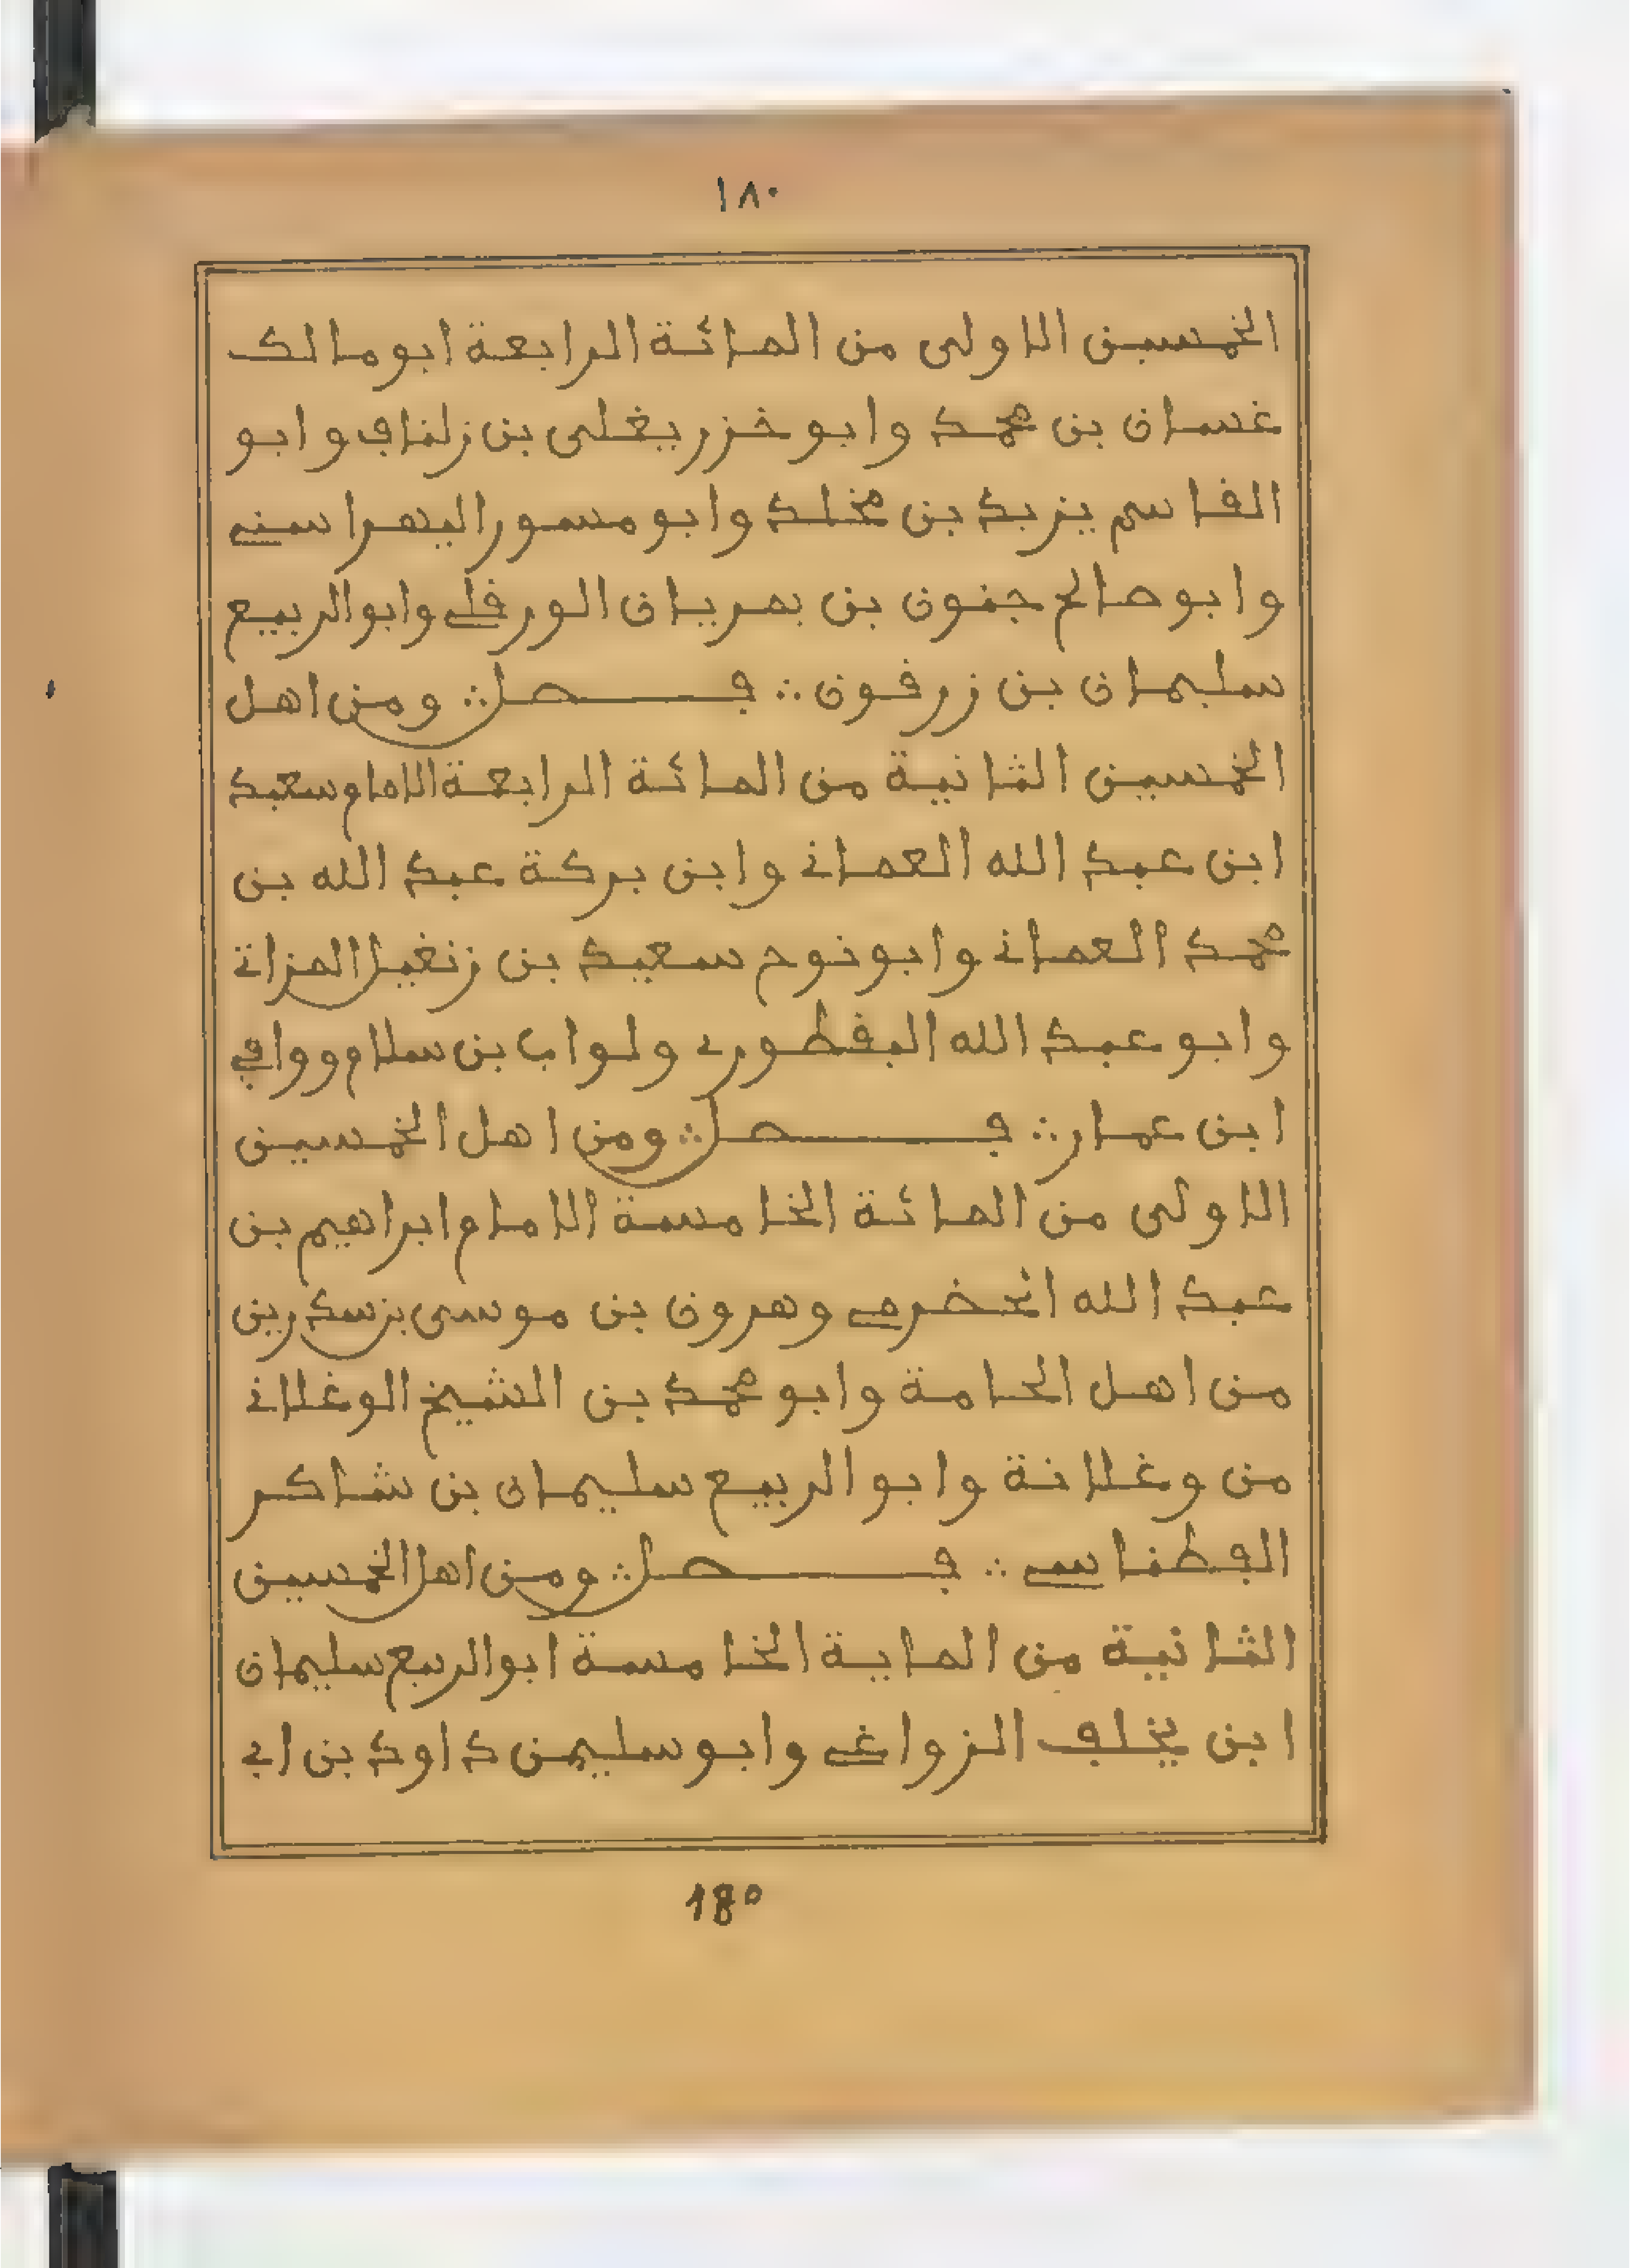 ١٨٠
الخمسين الاولى من المائة الرابعة ابو مالك
غسان بن محمد وابو خزر يغلى بن زلتاف وابو
القاسم يزيد بن مخلد وابو مسور اليهراسني
وابو صالح جنون بن يمريان الورقلي وابو الربيع
سليمان بن زرقون ∴ فصل ∴ ومن اهل
الخمسين الثانية من المائة الرابعة الامام سعيد
ابن عبد الله العماني وابن بركة عبد الله بن
محمد العماني وابو نوح سعيد بن زنغيل المزاتي
وابو عبد الله البقطوري ولواب بن سلام ووافي
ابن عمار ∴ فصل ∴ ومن اهل الخمسين
الاولى من المائة الخامسة الامام ابراهيم بن
عبد الله الحضرمي وهرون بن موسى بن سدرين
من اهل الحامة وابو محمد بن الشيخ الوغلاني
من وغلانة وابو الربيع سليمان بن شاكر
الفطناسي ∴ فصل ∴ ومن اهل الخمسين
الثانية من الماية الخامسة ابو الربيع سليمان
ابن يخلف الزواغي وابو سليمن داود بن ابي
180